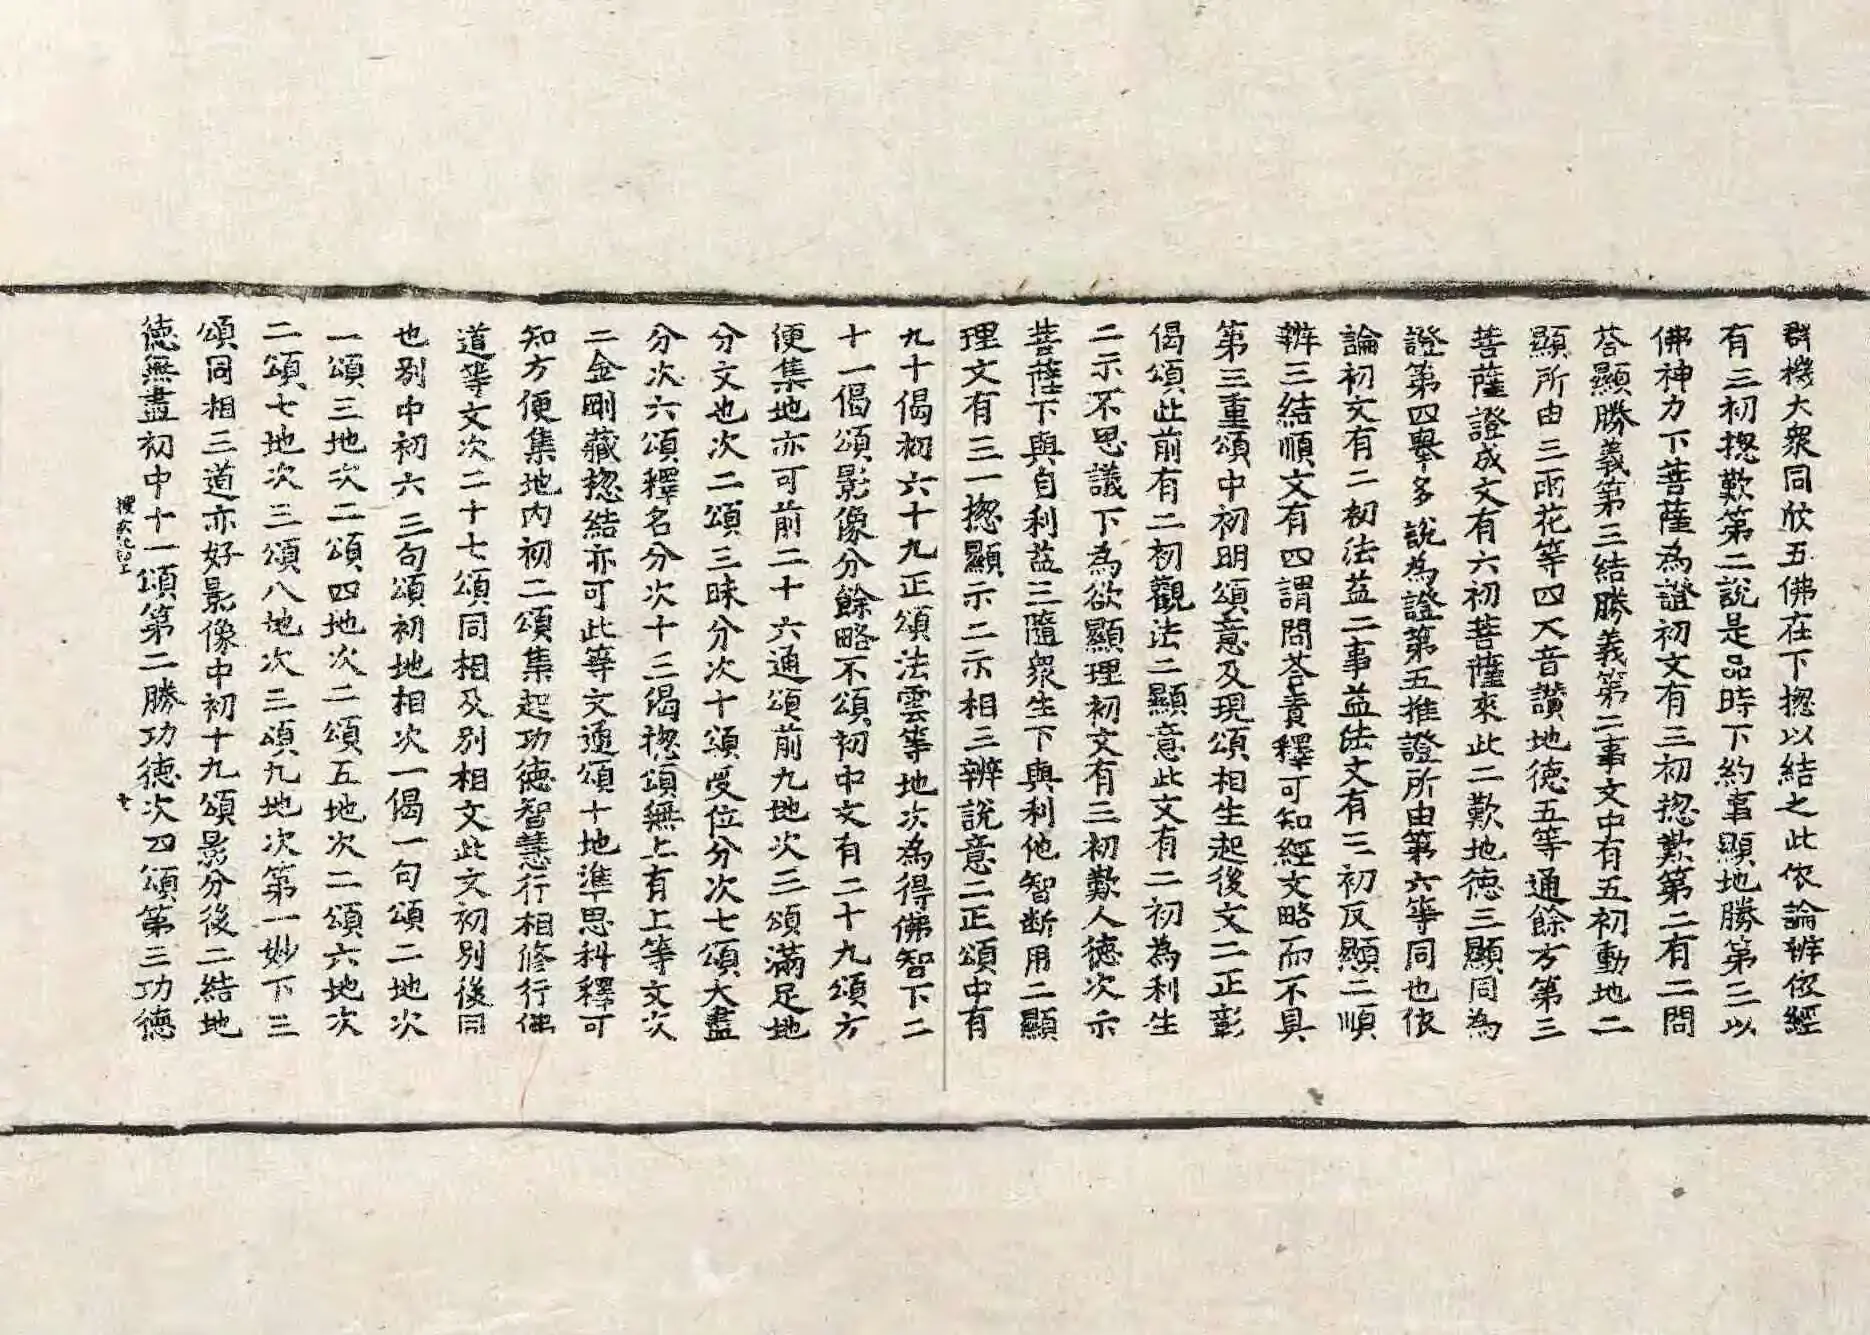 群機大衆同欣五佛在下揔以結之此依論辨依經
有三初揔歎第二說是品時下約事顯地勝第三以
佛神力下菩薩為證初文有三初揔歎第二有二問
荅顯勝義第三結勝義第二事文中有五初動地二
顯所由三雨花等四天音讚地德五等通餘方第三
菩薩證成文有六初菩薩來此二歎地德三顯同為
證第四舉多說為證第五推證所由第六等同也依
論初文有二初法益二事益法文有三初反顯二順
辨三結順文有四謂問荅責釋可知經文略而不具
第三重頌中初明頌意及現頌相生起後文二正彰
偈頌此前有二初觀法二顯意此文有二初為利生
二示不思議下為欲顯理初文有三初歎人德次示
菩薩下與自利益三隨衆生下與利他智断用二顯
理文有三一揔顯示二示相三辨說意二正頌中有
九十偈初六十九正頌法雲等地次為得佛智下二
十一偈頌影像分餘略不頌初中文有二十九頌方
便集地亦可前二十六通頌前九地次三頌滿足地
分文也次二頌三昧分次十頌受位分次七頌大盡
分次六頌釋名分次十三偈揔頌無上有上等文次
二金剛藏揔結亦可此等文通頌十地準思科釋可
知方便集地內初二頌集起功德智慧行相修行佛
道等文次二十七頌同相及別相文此文初別後同
也別中初六三句頌初地相次一偈一句頌二地次
一頌三地次二頌四地次二頌五地次二頌六地次
二頌七地次三頌八地次三頌九地次第一妙下三
頌同相三道亦好影像中初十九頌影分後二結地
德無盡初中十一頌第二勝功德次四頌第三功德